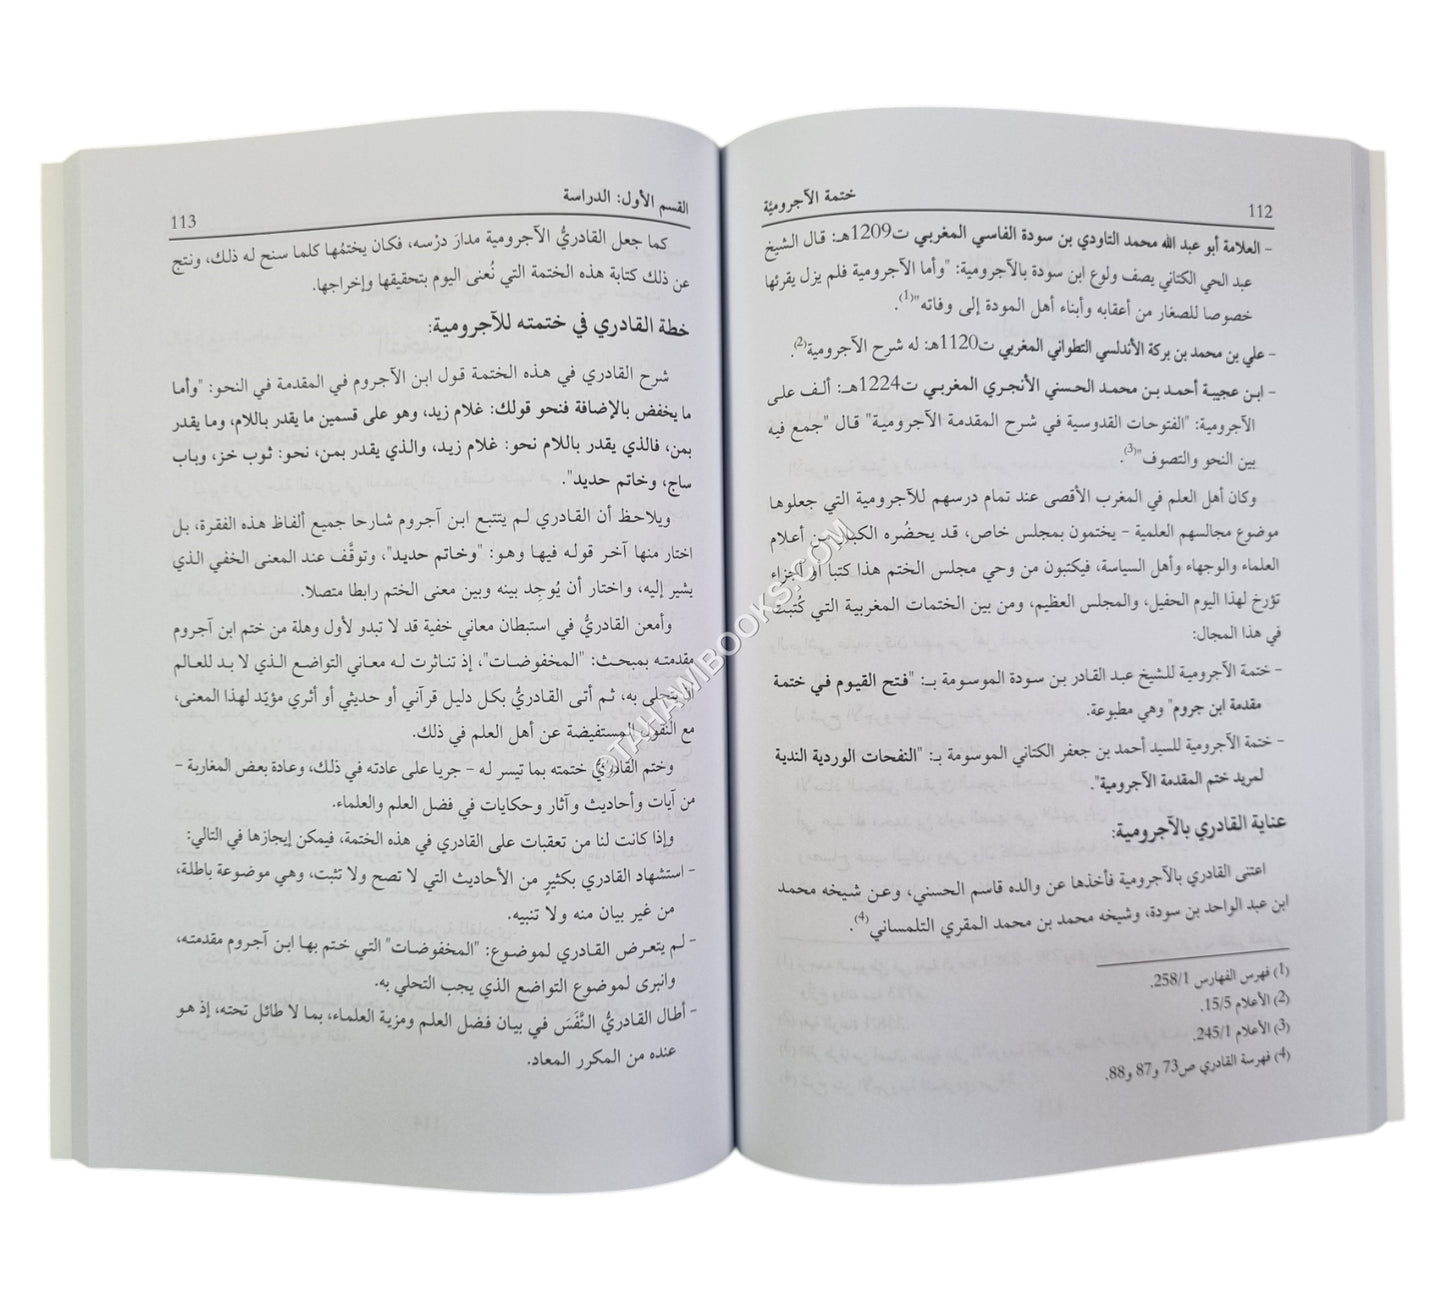 112
ختمة الآجروميَّة
- العلامة أبو عبد الله محمد التاودي بن سودة الفاسي المغربي ت1209هـ: قال الشيخ
عبد الحي الكتاني يصف ولوع ابن سودة بالآجرومية: "وأما الآجرومية فلم يزل يقرئها
خصوصا للصغار من أعقابه وأبناء أهل المودة إلى وفاته"(1).
- علي بن محمد بن بركة الأندلسي التطواني المغربي ت1120هـ: له شرح الآجرومية(2).
- ابن عجيبة أحمد بن محمد الحسني الأنجري المغربي ت1224هـ: ألف على
الآجرومية: "الفتوحات القدوسية في شرح المقدمة الآجرومية" قال "جمع فيه
بين النحو والتصوف"(3).
وكان أهل العلم في المغرب الأقصى عند تمام درسهم للآجرومية التي جعلوها
موضوع مجالسهم العلمية – يختمون بمجلس خاص، قد يحضُره الكبار من أعلام
العلماء والوجهاء وأهل السياسة، فيكتبون من وحي مجلس الختم هذا كتبا أو أجزاء
تؤرخ لهذا اليوم الحفيل، والمجلس العظيم، ومن بين الختمات المغربية التي كُتبت
في هذا المجال:
- ختمة الآجرومية للشيخ عبد القادر بن سودة الموسومة بـ: "فتح القيوم في ختمة
مقدمة ابن جروم" وهي مطبوعة.
- ختمة الآجرومية للسيد أحمد بن جعفر الكتاني الموسومة بـ: "النفحات الوردية الندية
لمريد ختم المقدمة الآجرومية".
عناية القادري بالآجرومية:
اعتنى القادري بالآجرومية فأخذها عن والده قاسم الحسني، وعن شيخه محمد
ابن عبد الواحد بن سودة، وشيخه محمد بن محمد المقري التلمساني(4).
(1) فهرس الفهارس 258/1.
(2) الأعلام 15/5.
(3) الأعلام 245/1.
(4) فهرسة القادري ص73 و87 و88.
القسم الأول: الدراسة
113
كما جعل القادريُّ الآجرومية مدارَ درْسه، فكان يختمُها كلما سنح له ذلك، ونتج
عن ذلك كتابة هذه الختمة التي نُعنى اليوم بتحقيقها وإخراجها.
خطة القادري في ختمته للآجرومية:
شرح القادري في هذه الختمة قول ابن الآجروم في المقدمة في النحو: "وأما
ما يخفض بالإضافة فنحو قولك: غلام زيد، وهو على قسمين ما يقدر باللام، وما يقدر
بمن، فالذي يقدر باللام نحو: غلام زيد، والذي يقدر بمن، نحو: ثوب خز، وباب
ساج، وخاتم حديد".
ويلاحظ أن القادري لم يتتبع ابن آجروم شارحا جميع ألفاظ هذه الفقرة، بل
اختار منها آخر قوله فيها وهو: "وخاتم حديد"، وتوقَّف عند المعنى الخفي الذي
يشير إليه، واختار أن يُوجد بينه وبين معنى الختم رابطا متصلا.
وأمعن القادريُّ في استبطان معاني خفية قد لا تبدو لأول وهلة من ختم ابن آجروم
مقدمته بمبحث: "المخفوضات"، إذ تناثرت له معاني التواضع الذي لا بد للعالم
أن يتحلى به، ثم أتى القادريُّ بكل دليل قرآني أو حديثي أو أثري مؤيّد لهذا المعنى،
مع النقول المستفيضة عن أهل العلم في ذلك.
وختم القادري ختمته بما تيسر له – جريا على عادته في ذلك، وعادة بعض المغاربة –
من آيات وأحاديث وآثار وحكايات في فضل العلم والعلماء.
وإذا كانت لنا من تعقبات على القادري في هذه الختمة، فيمكن إيجازها في التالي:
- استشهاد القادري بكثيرٍ من الأحاديث التي لا تصح ولا تثبت، وهي موضوعة باطلة،
من غير بيان منه ولا تنبيه.
- لم يتعرض القادري لموضوع: "المخفوضات" التي ختم بها ابن آجروم مقدمته،
وانبرى لموضوع التواضع الذي يجب التحلي به.
- أطال القادريُّ النَّفَسَ في بيان فضل العلم ومزية العلماء، بما لا طائل تحته، إذ هو
عنده من المكرر المعاد.
©TAHAMIBOOKS.COM